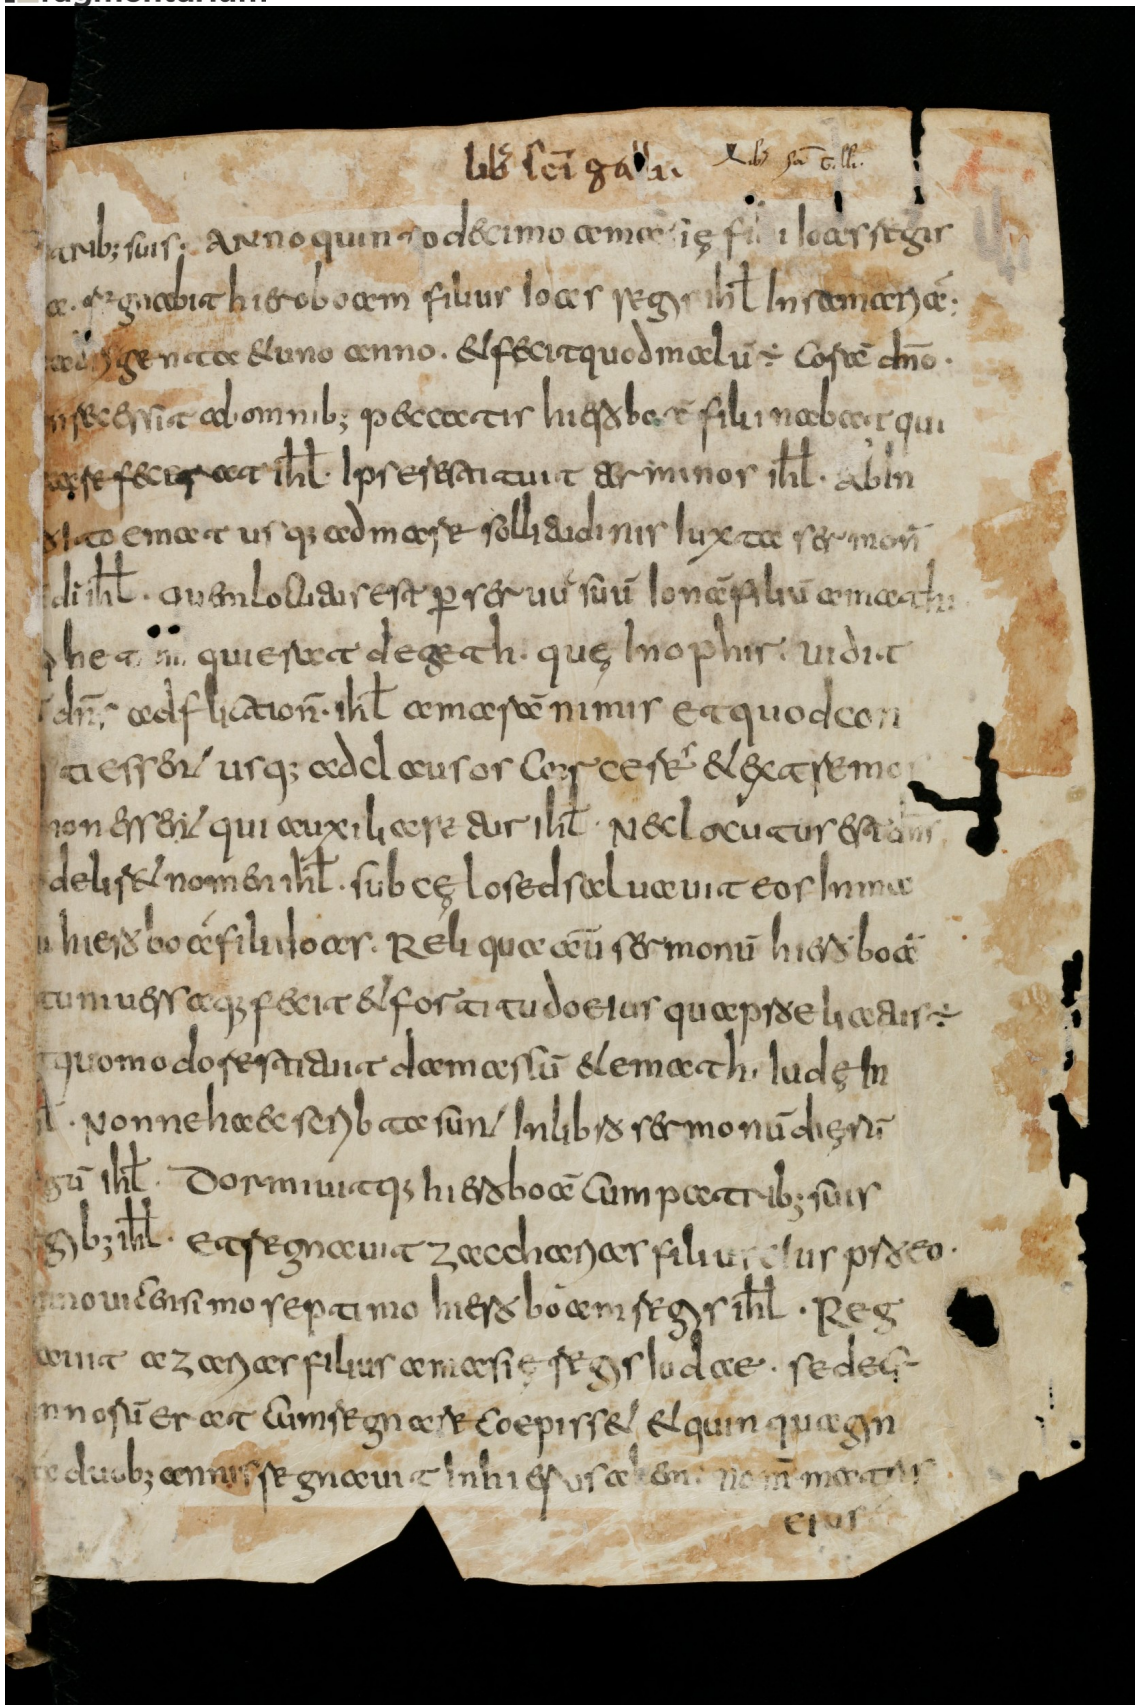 lib̄ sc̄i galli.
atrib; suis. Anno quinto decimo amasię filii ioas regis
regnabit hieroboam filius ioas regis ihl̄ In samariā.
quadraginta & uno anno. & fecit quod malū ÷ coram dn̄o.
recessit ab omnib; peccatis hieroboā filii nabat qui
peccare fecerat ihl̄. Ipse restituit terminos ihl̄. ab In
troitu emat usq; ad mare sollitudinis Iuxta sermon̄
di ihl̄. quem locutus est ꝑ seruū suū Ionā filiū amathi
phetā qui erat de geth. quę In ophir. uidit
dn̄s adflictionē. ihl̄ amarā nimis et quod con
ti essent usq; ad clausos carcere & extremos
non esset qui auxiliaretur ihl̄. Nec locutus est dn̄s
deleret nomen ihl̄. sub cęlo sed saluauit eos In ma
u hieroboā filii ioas. Reliqua aū sermonū hieroboā
t uniuersa q; fecit & fortitudo eius qua prȩliatus ÷
t quomodo restituit damascū & emath. Iudę In
ihl̄. Nonne haec scribta sunt In libro sermonū dierū
regū ihl̄. Dormiuitq; hieroboā cum patrib; suis
regib; ihl̄. Et regnauit zaccharias filius eius pro eo.
Anno uicensimo septimo hieroboam regis ihl̄. Reg
nauit azarias filius amasię regis Iudae. sedecī
annorū erat cum regnare coepisset & quinquagin
ta duob; annis regnauit In hierusalem. nom̄ matris
eius